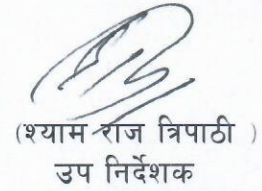 (श्याम राज त्रिपाठी )
उप निर्देशक